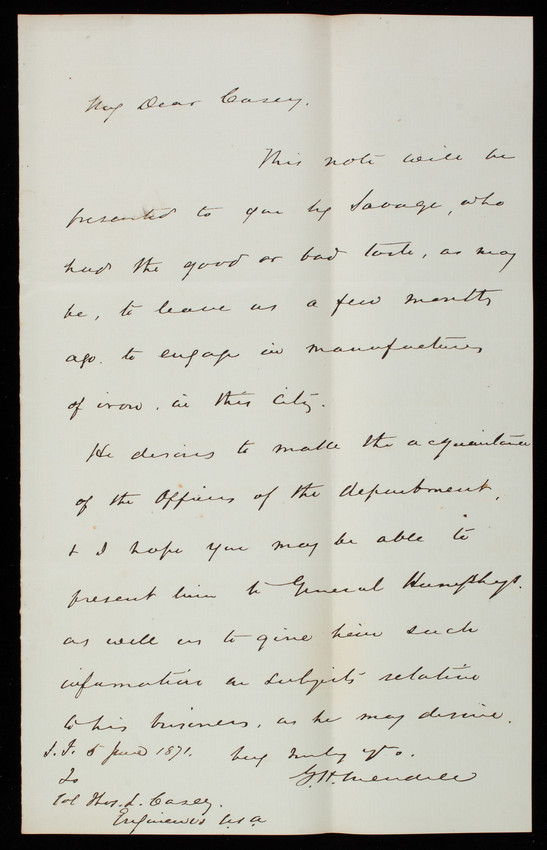 My Dear Casey.
This note will be
presented to you by Savage, who
had the good or bad taste, as may
be, to leave us a few months
ago. to engage in manufactures
of iron. in this City.
He desires to make the acquaintance
of the Officers of the department,
& I hope you may be able to
present him to General Humphreys.
as well as to give him such
information on subjects relative
to his business. as he may desire.
S.F. 5 June 1871. Very truly yrs.
To G.H. Mendell
Col Thos. L. Casey.
Engineers U.S.A.